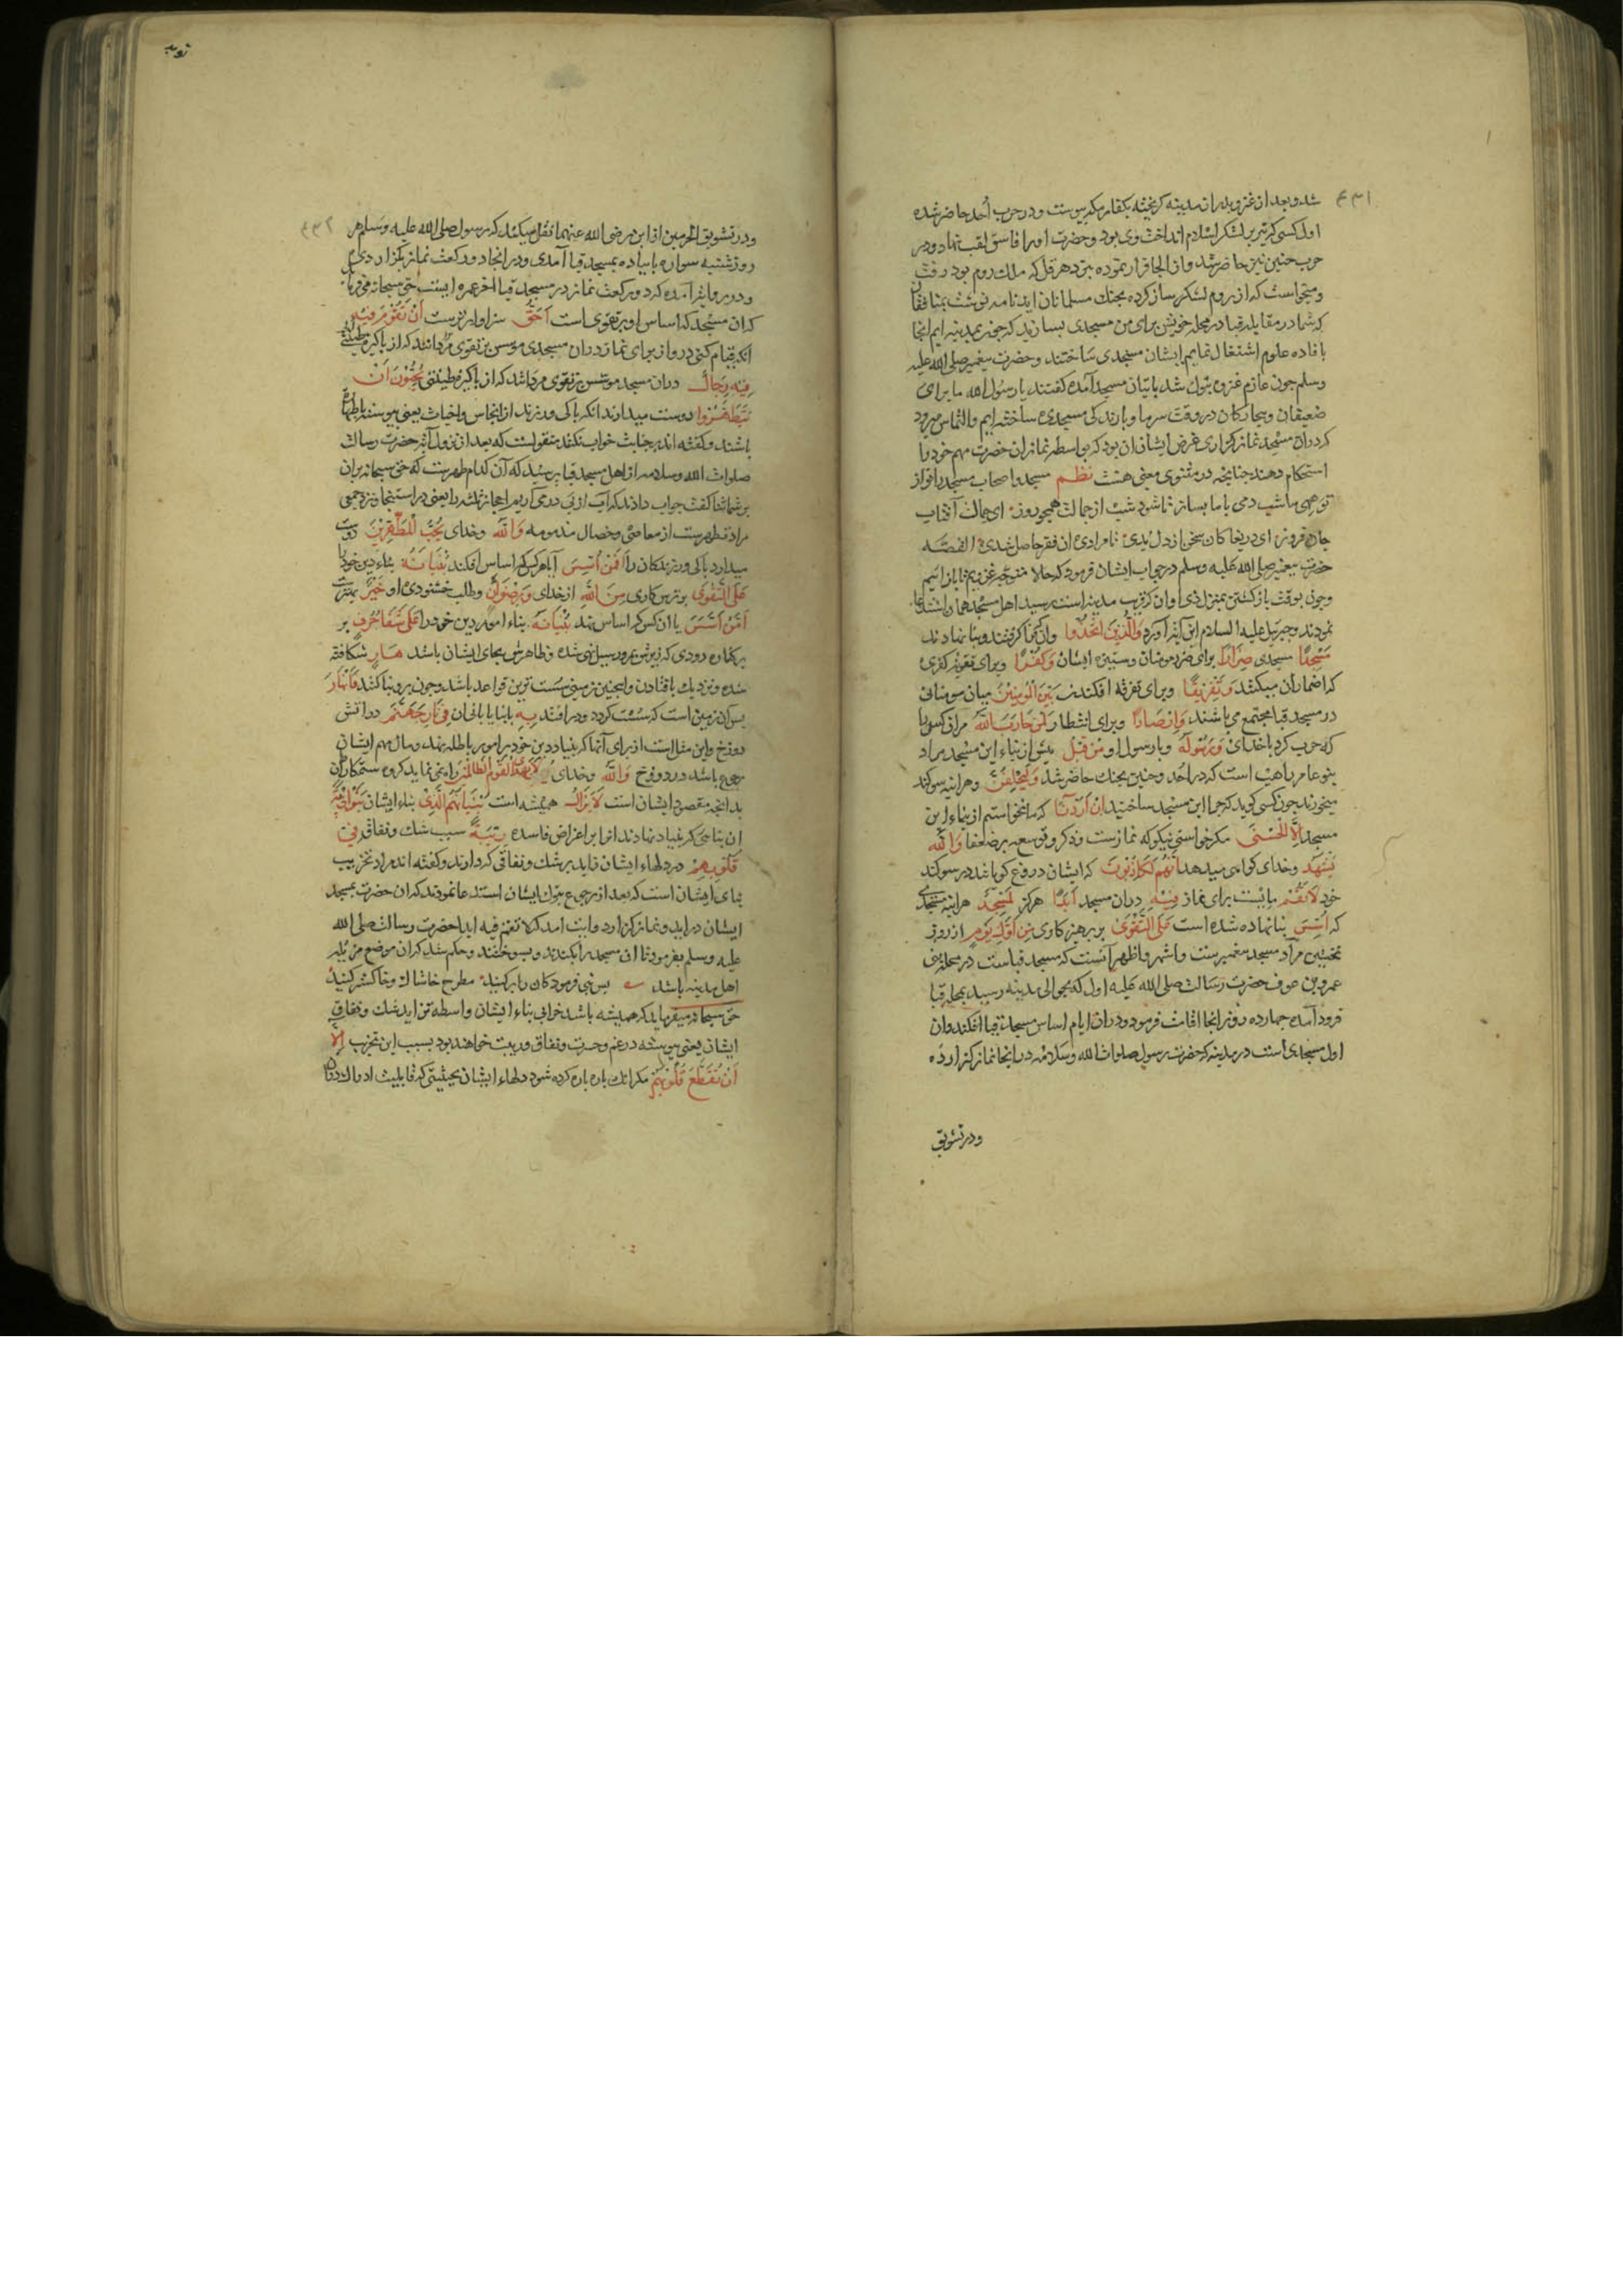 ۴۳۱
شد و بعد از غزو بدر از مدینه کریخته بکفار مکه پیوست و در حرب أحد حاضر شده
اول کسی که تیر بر لشکر اسلام انداخت وی بود و حضرت او را فاسق لقب نهاد و در
حرب حنین نیز حاضر شد و از انجا فرار نموده نزد هرقل که ملک روم بود رفت
و میخواست که از روم لشکر ساز کرده بجنک مسلمانان اید نامه نوشت بمنافقان
که شما در مقابله قبا در محله خویش برای من مسجدی بسازید که چون بمدینه ایم انجا
بافاده علوم اشتغال نمایم ایشان مسجدی ساختند و حضرت پیغمبر صلی الله علیه
وسلم چون عازم غزوه تبوک شد بانیان مسجد آمده کفتند یا رسول الله ما برای
ضعیفان و بیچارکان در وقت سرما و بارندکی مسجدی ساخته ایم و التماس میرود
که در ان مسجد نماز کزاری غرض ایشان ان بود که بواسطه نماز ان حضرت مهم خود را
استحکام دهند چنانچه در مثنوی معنی هست نظم مسجد و اصحاب مسجد را نواز
تو مهی ما شب دمی با ما بساز تا شود شب از جمالت همچو روز ای جمالت آفتاب
جان فروز ای دریغا کان سخن از دل بدی تا مرادی ان نفر حاصل شدی القصه
حضرت پیغمبر صلی الله علیه وسلم در جواب ایشان فرمود که حالا متوجه غزویم تا باز ائیم
و چون بوقت بازکشتن بمنزل ذی اوان که قریب مدینه است رسید اهل مسجد همان استدعا
نمودند و جبرئیل علیه السلام این آیه آورد وَالَّذِینَ اتَّخَذُوا وانکه فرا کرفتند و بنا نهادند
مَسْجِدًا مسجدی ضِرَارًا برای ضرر مومنان و ستیزه ایشان وَکُفْرًا و برای تقویت کفری
که اضمار ان میکنند وَتَفْرِیقًا و برای تفرقه افکندن بَیْنَ الْمُؤْمِنِینَ میان مومنانی
در مسجد قبا مجتمع می باشند وَاِرْصَادًا و برای انتظار لِمَنْ حَارَبَ اللّٰهَ مر ان کسی را
که حرب کرد با خدای وَرَسُولَهُ و با رسول او مِنْ قَبْلُ پیش از بناء این مسجد مراد
بنو عامر راهب است که در احد و حنین بجنک حاضر شد وَلَیَحْلِفُنَّ و هر اینه سوکند
میخورند چون کسی کوید که چرا این مسجد ساختید اِنْ اَرَدْنَا که ما نخواستیم از بناء این
مسجد اِلَّا الْحُسْنَی مکر خواستی نیکو که نمازست و ذکر و توسعه بر ضعفا وَاللّٰهُ
یَشْهَدُ و خدای کواهی میدهد اِنَّهُمْ لَکَاذِبُونَ که ایشان دروغ کویانند در سوکند
خود لَا تَقُمْ مایست برای نماز فِیهِ در ان مسجد اَبَدًا هرکز لَمَسْجِدٌ هر اینه مسجدی
که اُسِّسَ بنا نهاده شده است عَلَی التَّقْوَی بر پرهیزکاری مِنْ اَوَّلِ یَوْمٍ از روز
نخستین مراد مسجد پیغمبرست و اشهر و اظهر آنست که مسجد قباست در محله بنی
عمرو بن عوف حضرت رسالت صلی الله علیه اول که بحوالی مدینه رسید بمحله قبا
فرود آمده چهارده روز انجا اقامت فرمود و در ان ایام اساس مسجد قبا افکند و ان
اول مسجدی است در مدینه که حضرت رسول صلوات الله وسلامه در انجا نماز کزارده
ودر تشویق
توبه
۴۳۲
ودر تشویق الحرمین از ابن عمر رضی الله عنهما نقل میکند که رسول صلی الله علیه وسلم هر
روز شنبه سواره یا پیاده بمسجد قبا آمدی و در انجا دو رکعت نماز بکزاردی
ودر روایتی آمده که دو رکعت نماز در مسجد قبا اخر عمره ایست حق سبحانه می فرماید
که ان مسجد که اساس او بر تقوی است اَحَقُّ سزاوارترست اَنْ تَقُومَ فِیهِ
انکه قیام کنی در و از برای نماز در ان مسجدی موسس بر تقوی
فِیهِ رِجَالٌ در ان مسجد موسس بر تقوی مردانند که از پاکیزه طینتی یُحِبُّونَ اَنْ
یَتَطَهَّرُوا دوست میدارند انکه پاکی ورزند از انجاس و اخباث یعنی پیوسته با طهارت
باشند و کفته اند بر جنابت خواب نکنند منقولست که بعد از نزول آیه حضرت رسالت
صلوات الله وسلامه از اهل مسجد قبا پرسید که آن کدام طهرست که حق سبحانه بران
بر شما ثنا کفت جواب دادند که آب از پی در می آریم احجار ثلثه را یعنی در استنجا و نزد جمعی
مراد تطهرست از معاصی و خصال مذمومه وَاللّٰهُ و خدای یُحِبُّ الْمُطَّهِّرِینَ دوست
میدارد پاکی ورزندکان را اَفَمَنْ اَسَّسَ آیا هر کس که اساس افکند بُنْیَانَهُ بناء دین خود را
عَلَی التَّقْوَی بر ترس کاری مِنَ اللّٰهِ از خدای وَرِضْوَانٍ و طلب خشنودی او خَیْرٌ بهترست
اَمْ مَنْ اَسَّسَ یا ان کس که اساس نهد بُنْیَانَهُ بناء امور دین خود را عَلَی شَفَا جُرُفٍ بر
بر کناره رودی که زیرش بمرور سیل تهی شده و ظاهرش بجای ایشان باشد هَارٍ شکافته
شده و نزدیک بافتادن و اینچنین زمینی سست ترین قواعد باشد و چون برو بنا کنند فَانْهَارَ
پس آن زمین است که سست کردد و در افتد بِهِ با بنا یا با بانی ان فِی نَارِ جَهَنَّمَ در اتش
دوزخ و این مثل است از برای آنها که بنیاد دین خود بر امور باطله نهند و مال مهم ایشان
رجوع باشد در دوزخ وَاللّٰهُ و خدای لَا یَهْدِی الْقَوْمَ الظَّالِمِینَ راه نمی نماید کروه ستمکاران
بدانچه مقصود ایشان است لَا یَزَالُ همیشه است بُنْیَانُهُمُ الَّذِی بناء ایشان بَنَوْا رِیبَةً
ان بنائی که بنیاد نهادند انرا بر اغراض فاسده رِیبَةً سبب شک و نفاق فِی
قُلُوبِهِمْ در دلهاء ایشان زاید بر شک و نفاقی که دارند و کفته اند مراد تخریب
بنای ایشان است که بعد از رجوع تبوک ایشان استدعا نمودند که ان حضرت بمسجد
ایشان در اید و نماز کزارد و ایت امد که لا تقم فیه ابدا حضرت رسالت صلی الله
علیه وسلم بفرمود تا ان مسجد را بکندند و بسوختند و حکم شد که ان موضع مزبله
اهل مدینه باشد پس نبی فرمود کان را برکنید مطرح خاشاک و خاکستر کنید
حق سبحانه میفرماید که همیشه باشد خرابی بناء ایشان واسطه تزاید شک و نفاق
ایشان یعنی پیوسته در غم و حسرت و نفاق و ریبت خواهند بود بسبب این تخریب اِلَّا
اَنْ تَقَطَّعَ قُلُوبُهُمْ مکر انک پاره پاره کرده شود دلهاء ایشان بحیثیتی که قابلیت ادراک